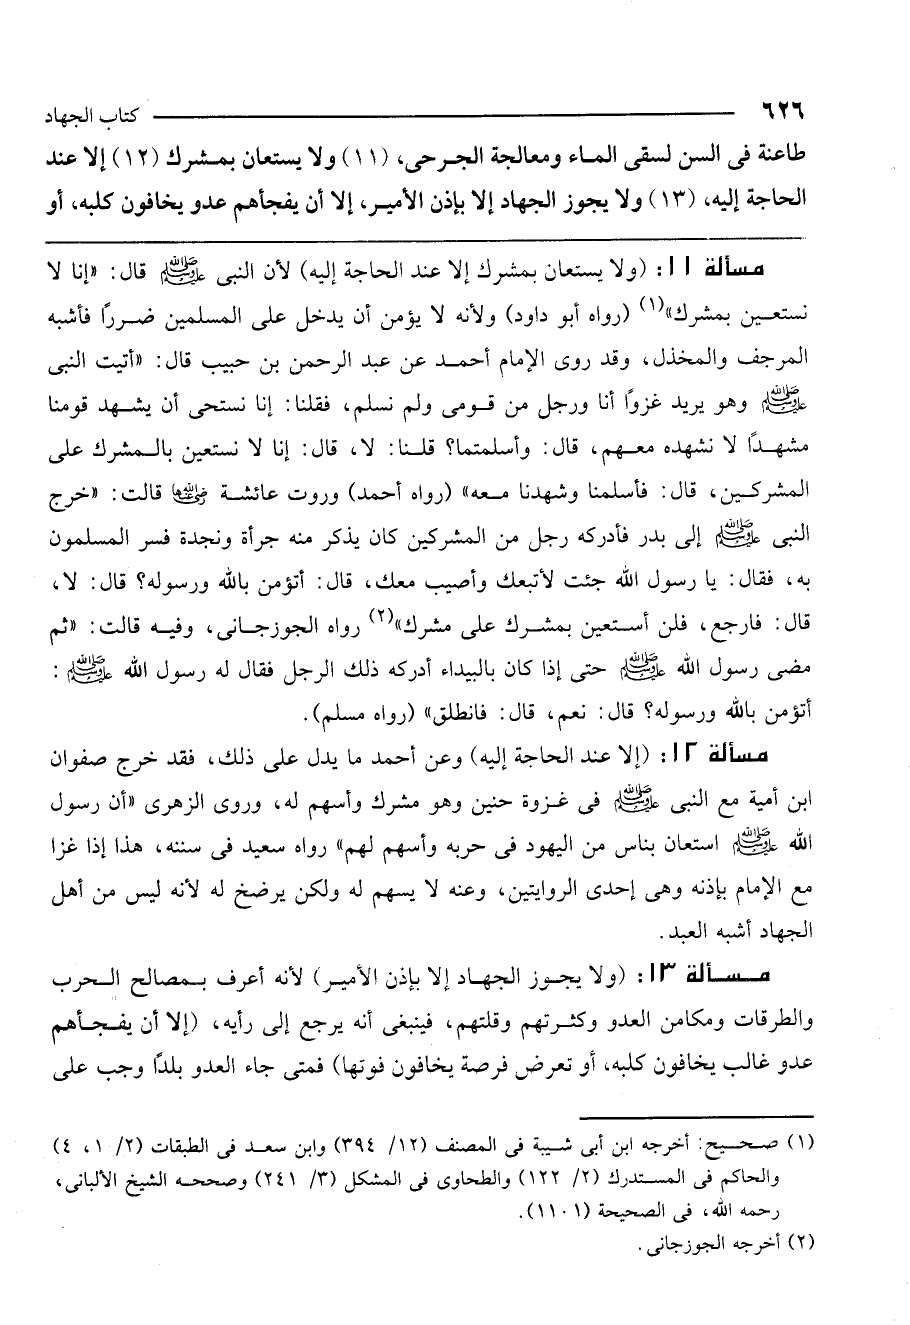 ٦٢٦ كتاب الجهاد
طاعنة فى السن لسقى الماء ومعالجة الجرحى، (١١) ولا يستعان بمشرك (١٢) إلا عند
الحاجة إليه، (١٣) ولا يجوز الجهاد إلا بإذن الأمير، إلا أن يفجأهم عدو يخافون كلبه، أو
مسألة ١١: (ولا يستعان بمشرك إلا عند الحاجة إليه) لأن النبى ﷺ قال: «إنا لا
نستعين بمشرك»(١) (رواه أبو داود) ولأنه لا يؤمن أن يدخل على المسلمين ضررًا فأشبه
المرجف والمخذل، وقد روى الإمام أحمد عن عبد الرحمن بن حبيب قال: «أتيت النبى
ﷺ وهو يريد غزوًا أنا ورجل من قومى ولم نسلم، فقلنا: إنا نستحى أن يشهد قومنا
مشهدًا لا نشهده معهم، قال: وأسلمتما؟ قلنا: لا، قال: إنا لا نستعين بالمشرك على
المشركين، قال: فأسلمنا وشهدنا معه» (رواه أحمد) وروت عائشة رضي الله عنها قالت: «خرج
النبى ﷺ إلى بدر فأدركه رجل من المشركين كان يذكر منه جرأة ونجدة فسر المسلمون
به، فقال: يا رسول الله جئت لأتبعك وأصيب معك، قال: أتؤمن بالله ورسوله؟ قال: لا،
قال: فارجع، فلن أستعين بمشرك على مشرك»(٢) رواه الجوزجانى، وفيه قالت: «ثم
مضى رسول الله ﷺ حتى إذا كان بالبيداء أدركه ذلك الرجل فقال له رسول الله ﷺ :
أتؤمن بالله ورسوله؟ قال: نعم، قال: فانطلق» (رواه مسلم).
مسألة ١٢: (إلا عند الحاجة إليه) وعن أحمد ما يدل على ذلك، فقد خرج صفوان
ابن أمية مع النبى ﷺ فى غزوة حنين وهو مشرك وأسهم له، وروى الزهرى «أن رسول
الله ﷺ استعان بناس من اليهود فى حربه وأسهم لهم» رواه سعيد فى سننه، هذا إذا غزا
مع الإمام بإذنه وهى إحدى الروايتين، وعنه لا يسهم له ولكن يرضخ له لأنه ليس من أهل
الجهاد أشبه العبد.
مسألة ١٣: (ولا يجوز الجهاد إلا بإذن الأمير) لأنه أعرف بمصالح الحرب
والطرقات ومكامن العدو وكثرتهم وقلتهم، فينبغى أنه يرجع إلى رأيه، (إلا أن يفجأهم
عدو غالب يخافون كلبه، أو تعرض فرصة يخافون فوتها) فمتى جاء العدو بلدًا وجب على
(١) صحيح: أخرجه ابن أبى شيبة فى المصنف (١٢/ ٣٩٤) وابن سعد فى الطبقات (٢/ ١، ٤)
والحاكم فى المستدرك (٢/ ١٢٢) والطحاوى فى المشكل (٣/ ٢٤١) وصححه الشيخ الألبانى،
رحمه الله، فى الصحيحة (١١٠١).
(٢) أخرجه الجوزجانى.